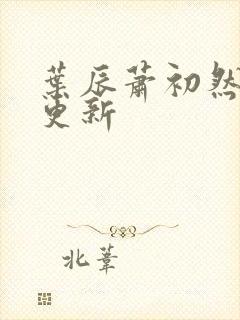 葉辰蕭初然
更新
北葦